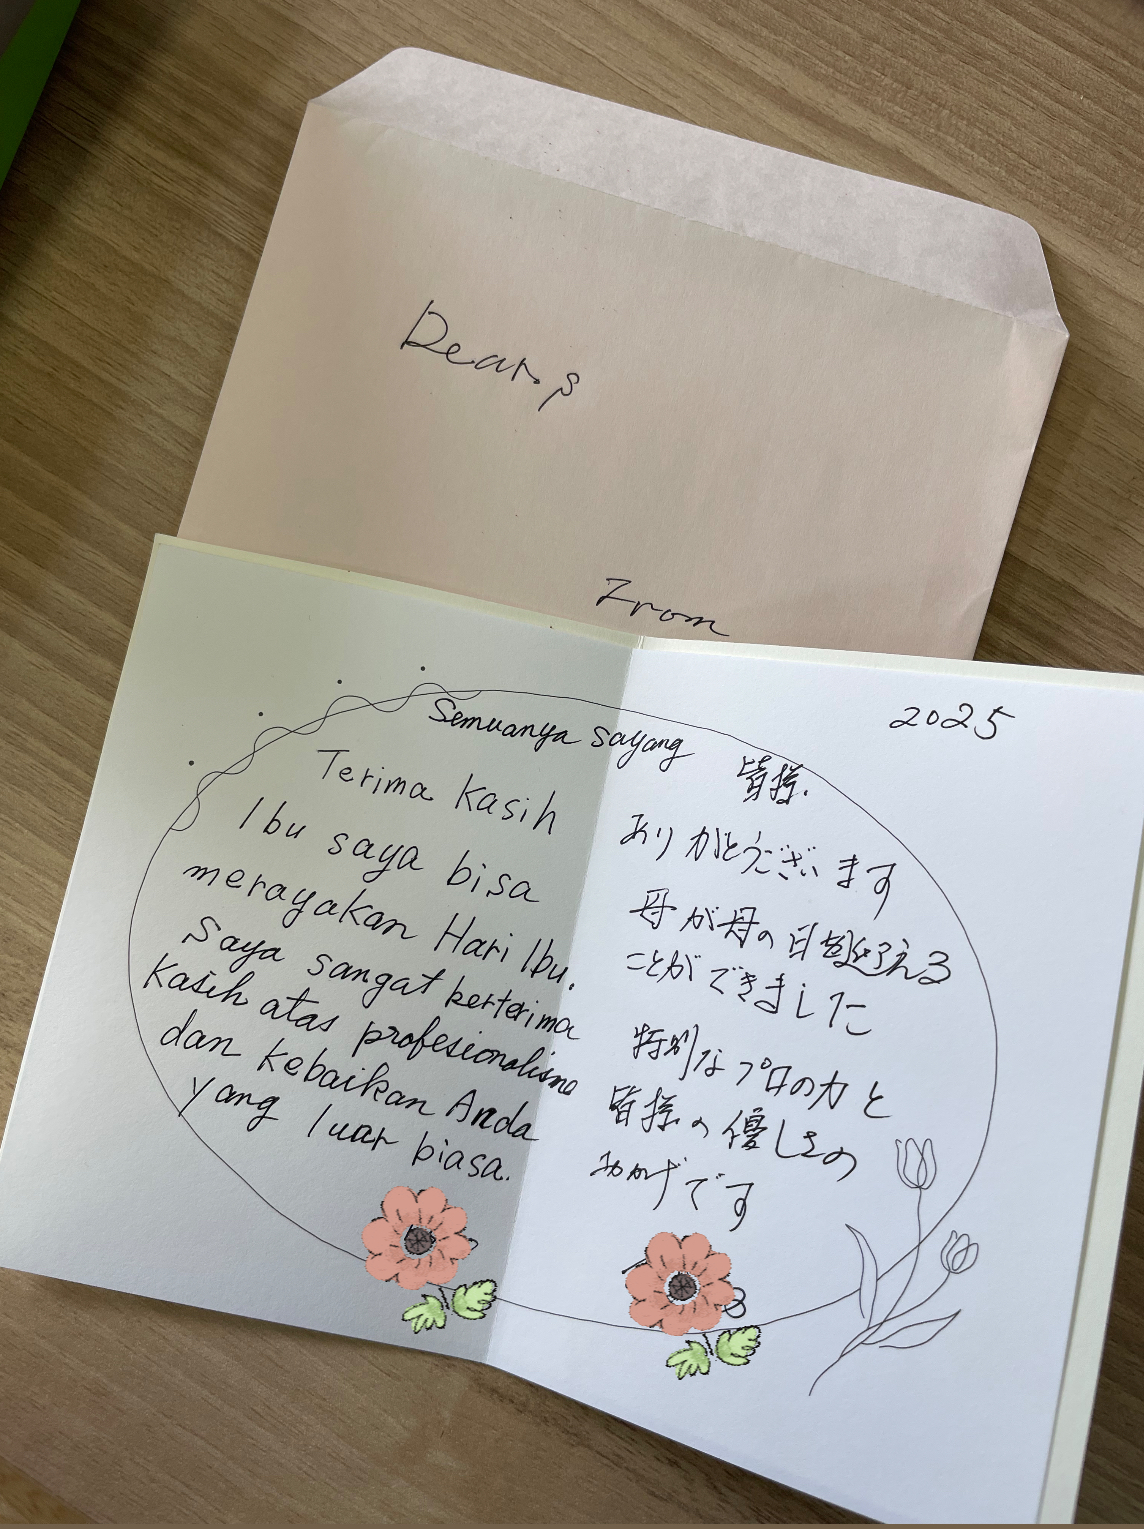 Dear.
From
Semuanya sayang
Terima kasih
Ibu saya bisa
merayakan Hari Ibu.
Saya sangat berterima
kasih atas profesionalisme
dan kebaikan Anda
yang luar biasa.
2025
皆様.
ありがとうございます
母が母の日を迎える
ことができました
特別なプロの力と
皆様の優しさの
おかげです